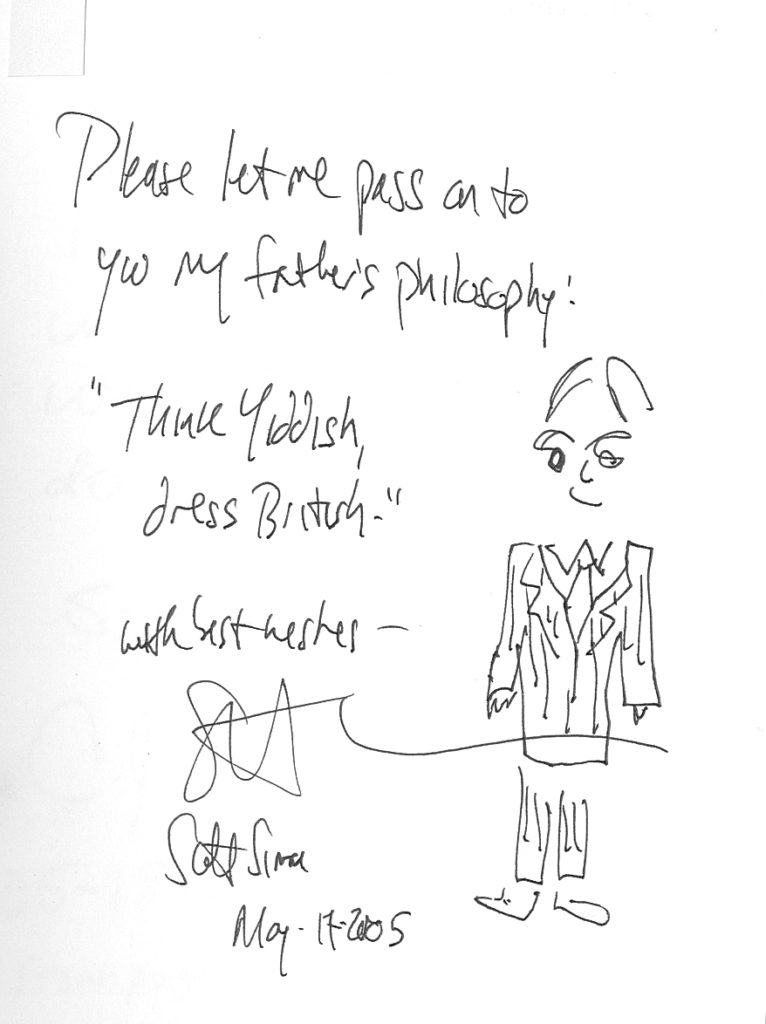 Please let me pass on to
you my father's philosophy:
"Think Yiddish,
dress British."
with best wishes —
Scott Simon
May-17-2005